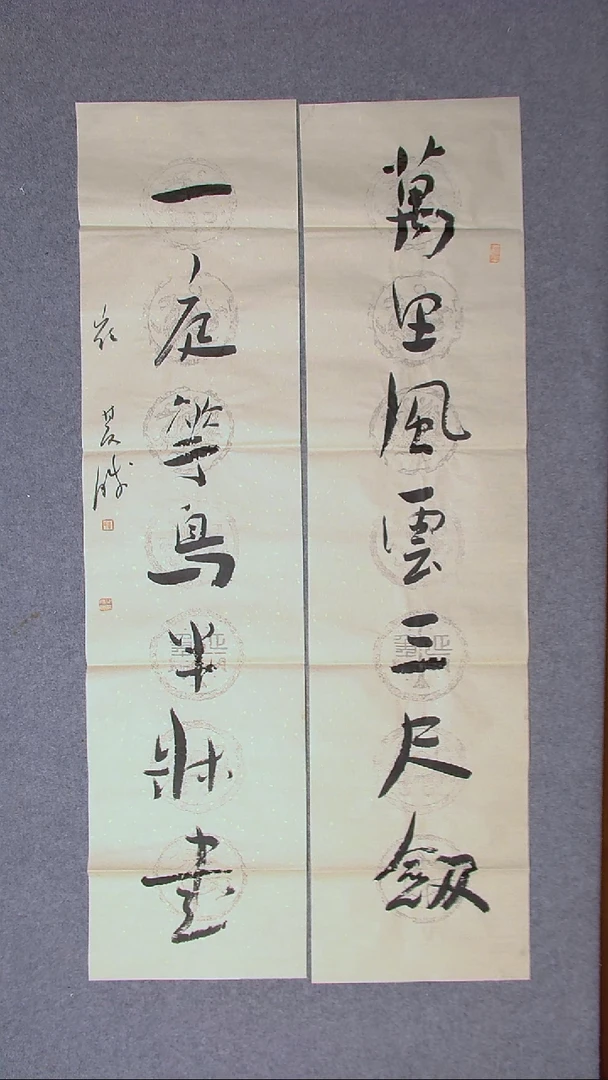 萬里風雲三尺劔
一庭花鳥半牀書